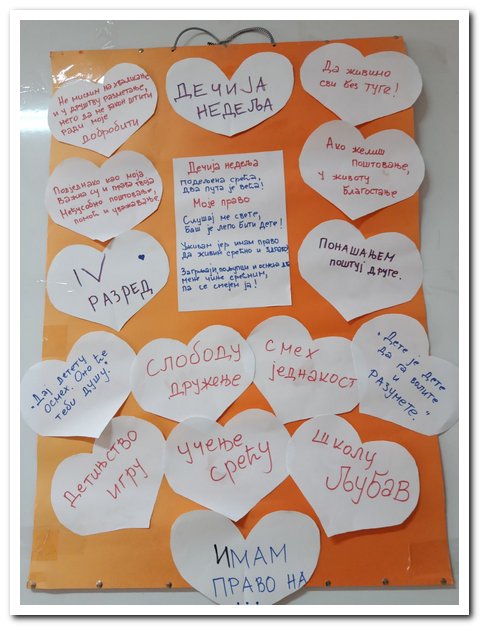 Не мислим на уважавање
и у друштву разметање,
него да ме закон штити
ради моје
добробити
ДЕЧИЈА
НЕДЕЉА
Да живимо
сви без туге!
Подједнако као моја
важна су и права твоја
Међусобно поштовање,
помоћ и уважавање.
Дечија недеља
Подељена срећа,
два пута је већа!
Моје право
Слушај ме свете,
Баш је лепо бити дете!
Уживам јер имам право
да живим срећно и здраво!
Загрљаји, пољупци и осмеси
мене чине срећним,
па се смејем ја!
Ако желиш
поштовање,
у животу
благостање
IV
РАЗРЕД
ПОНАШАЊЕМ
поштуј друге.
"Дај детету
осмех. Оно ће
теби душу."
СЛОБОДУ
дружење
смех
једнакост
"Дете је дете
да га волите
и
РАЗУМЕТЕ."
Детињство
игру
учење
срећу
школу
Љубав
ИМАМ
ПРАВО НА
...